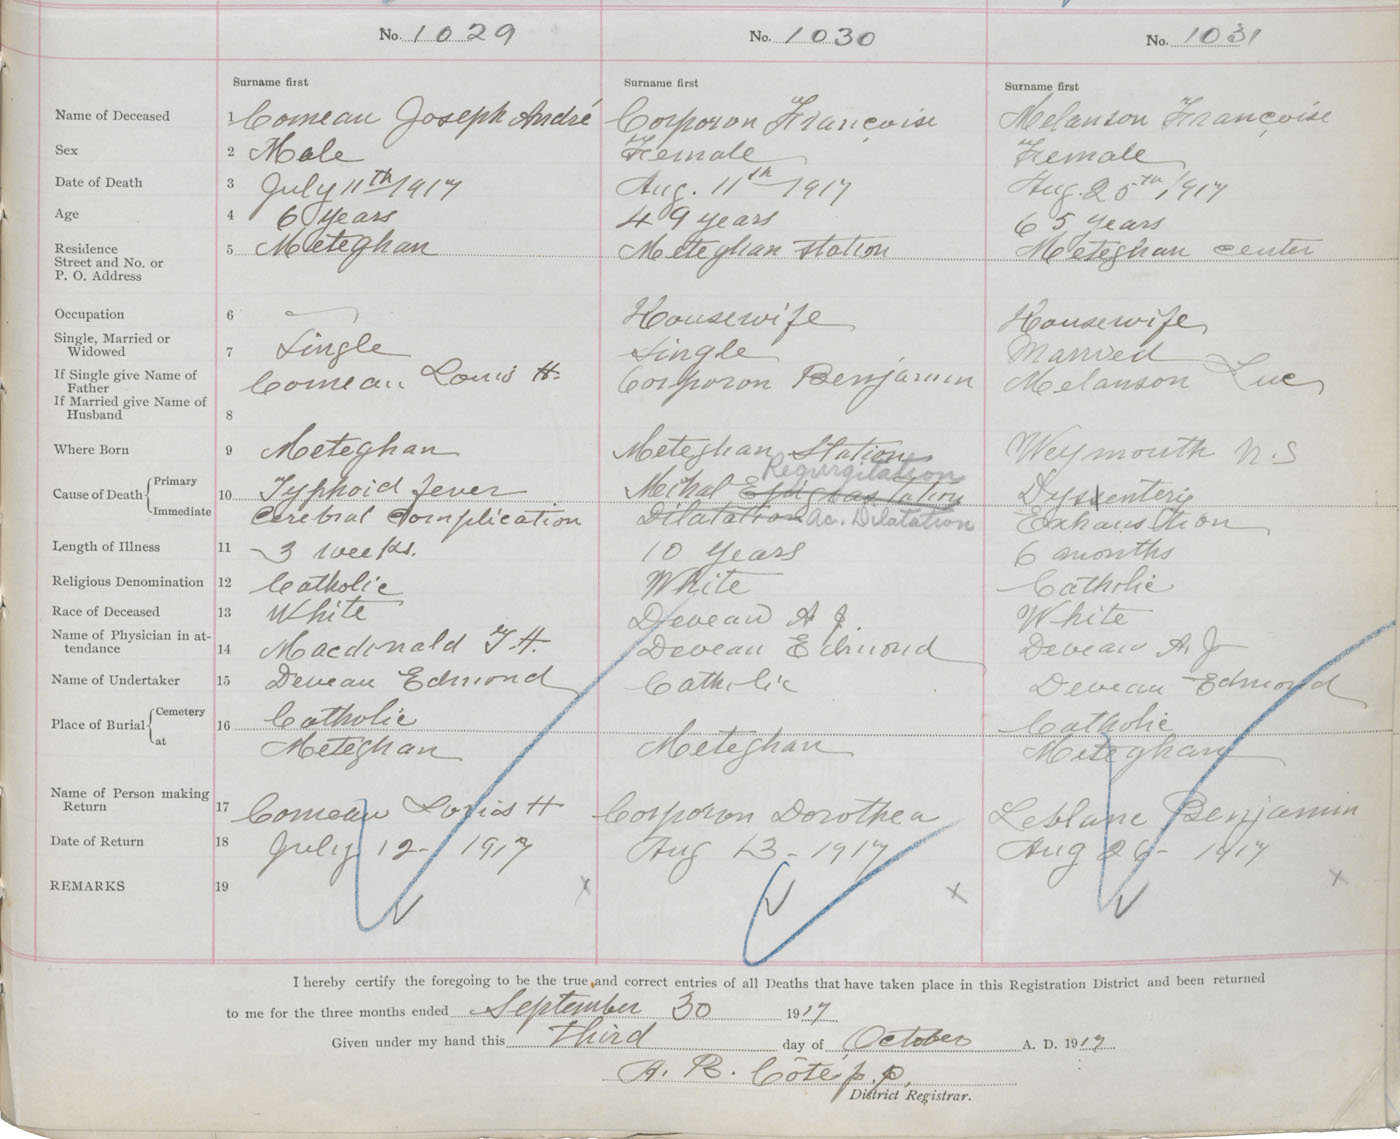 No. 1029 No. 1030 No. 1031
Surname first Surname first Surname first
Name of Deceased 1 Comeau Joseph André Corporon Françoise Melanson Françoise
Sex 2 Male Female Female
Date of Death 3 July 11th 1917 Aug. 11th 1917 Aug. 25th 1917
Age 4 6 years 49 years 65 years
Residence 5 Meteghan Meteghan station Meteghan center
Street and No. or
P. O. Address
Occupation 6 Housewife Housewife
Single, Married or
Widowed 7 Single Single Married
If Single give Name of
Father Comeau Louis H. Corporon Benjamin Melanson Luc
If Married give Name of
Husband 8
Where Born 9 Meteghan Meteghan Station Weymouth N.S
Regurgitation
Cause of Death Primary 10 Typhoid fever Mitral Dyssentery
Immediate Cerebral Complication Dilatation Ac. Dilatation Exhaustion
Length of Illness 11 3 weeks. 10 years 6 months
Religious Denomination 12 Catholic White Catholic
Race of Deceased 13 White Deveau A J. White
Name of Physician in at-
tendance 14 Macdonald T. H. Deveau Edmond Deveau A. J
Name of Undertaker 15 Deveau Edmond Catholic Deveau Edmond
Place of Burial Cemetery 16 Catholic Catholic
at Meteghan Meteghan Meteghan
Name of Person making
Return 17 Comeau Louis H Corporon Dorothea Leblanc Benjamin
Date of Return 18 July 12 - 1917 Aug 13 - 1917 Aug 26 - 1917
REMARKS 19 x x x
I hereby certify the foregoing to be the true and correct entries of all Deaths that have taken place in this Registration District and been returned
to me for the three months ended September 30 1917
Given under my hand this third day of October A. D. 1917
A. B. Côté p.p.
District Registrar.